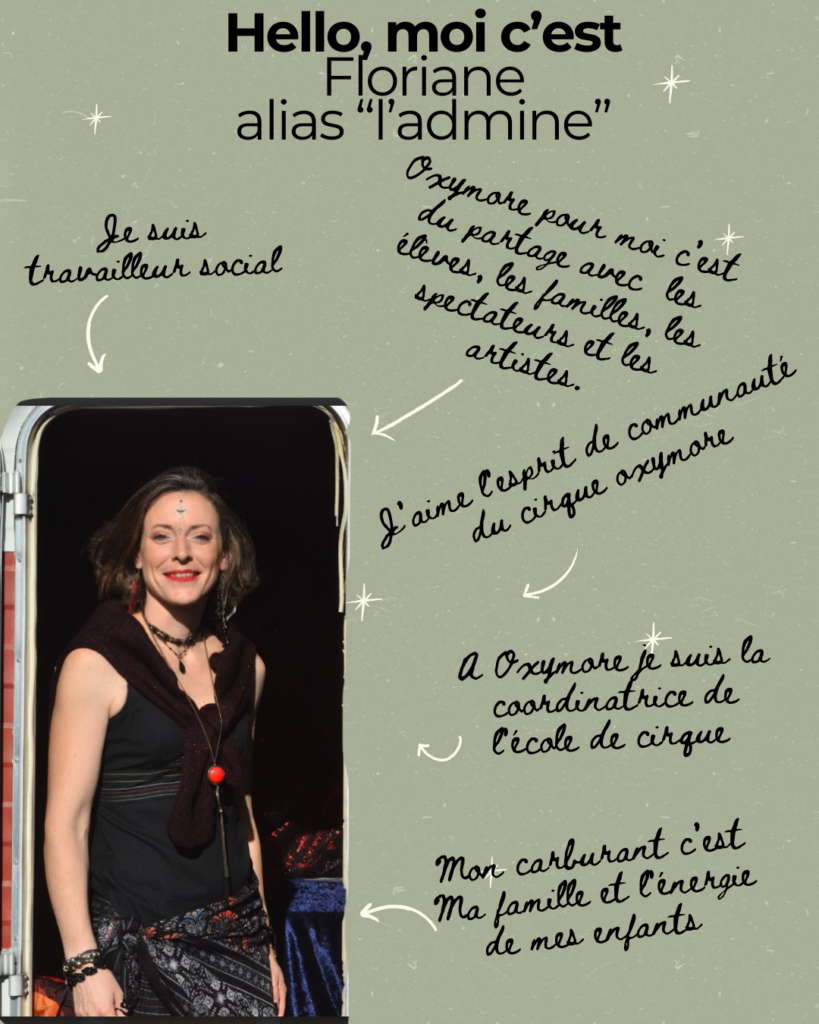 Hello, moi c’est
Floriane
alias “l’admine”
Je suis
travailleur social
Oxymore pour moi c'est
du partage avec les
élèves, les familles, les
spectateurs et les
artistes.
J'aime l'esprit de communauté
du cirque oxymore
A Oxymore je suis la
coordinatrice de
l'école de cirque
Mon carburant c'est
Ma famille et l'énergie
de mes enfants